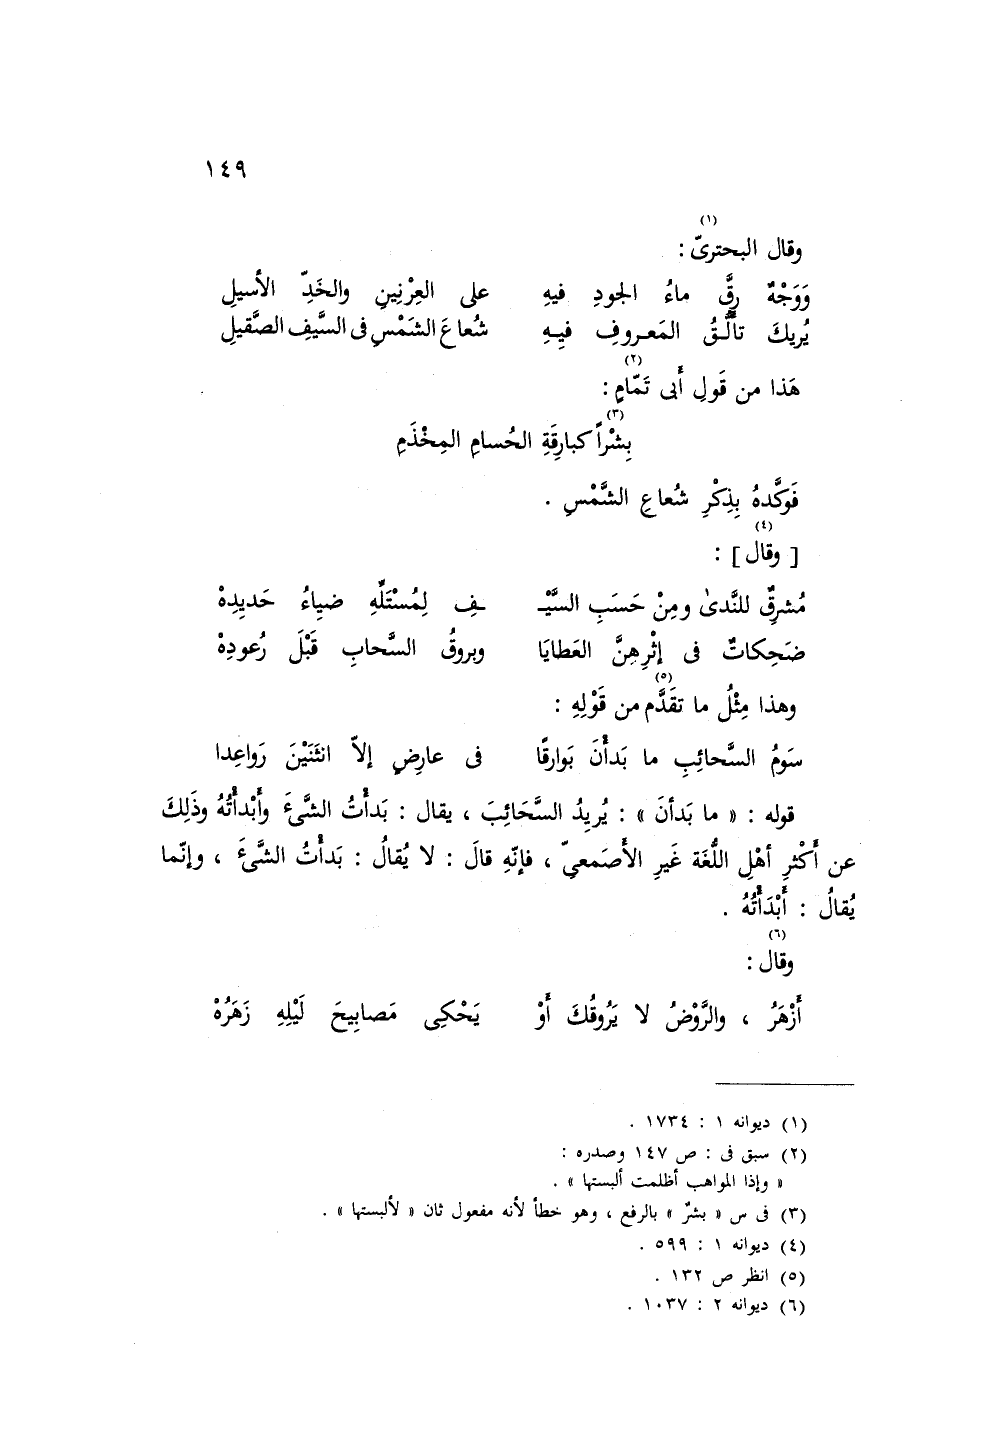 ١٤٩
(١)
وقال البحترىّ :
وَوَجْهٌ رقَّ ماءُ الجودِ فيهِ على العِرْنِينِ والخَدِّ الأسيلِ
يُريكَ تألُّقُ المَعروفِ فيِهِ شُعاعَ الشَمْسِ فى السَّيفِ الصَّقيلِ
(٢)
هَذا من قَولِ أَبى تَمّامٍ :
(٣)
بِشْراً كبارِقَةِ الحُسامِ المِخْذَمِ
فَوَكَّدهُ بِذِكْرِ شُعاعِ الشَّمْسِ .
(٤)
[ وقال ] :
مُشرِقٌ للنَّدىٰ ومِنْ حَسَبِ السَّيْـ ـفِ لِمُسْتَلِّهِ ضياءُ حَديدِهْ
ضَحِكاتٌ فى إثْرِهِنَّ العَطايَا وبروقُ السَّحابِ قَبْلَ رُعودِهْ
(٥)
وهذا مِثْلُ ما تقَدَّم من قَوْلِهِ :
سَومُ السَّحائِبِ ما بَدأْنَ بَوارقًا فى عارِضٍ إلاّ انثَنَيْنَ رَواعِدا
قوله : « ما بَدأنَ » : يُريدُ السَّحَائِبَ ، يقال : بَدأْتُ الشَّىءَ وأَبْدأْتُهُ وذَلِكَ
عن أَكْثرِ أهْلِ اللُّغَة غَيرِ الأَصَمعىّ ، فإنّهِ قالَ : لا يُقالُ : بَدأْتُ الشَّىءَ ، وإنّما
يُقالُ : أَبْدَأْتُهُ .
(٦)
وقال :
أَزْهَرُ ، والرَّوْضُ لا يَرُوقُكَ أَوْ يَحْكِى مَصابِيحَ لَيْلِهِ زَهَرُهْ
(١) ديوانه ١ : ١٧٣٤ .
(٢) سبق فى : ص ١٤٧ وصدره :
« وإذا المواهب أظلمت ألبستها » .
(٣) فى س « بشرٌ » بالرفع ، وهو خطأ لأنه مفعول ثان « لألبستها » .
(٤) ديوانه ١ : ٥٩٩ .
(٥) انظر ص ١٣٢ .
(٦) ديوانه ٢ : ١٠٣٧ .